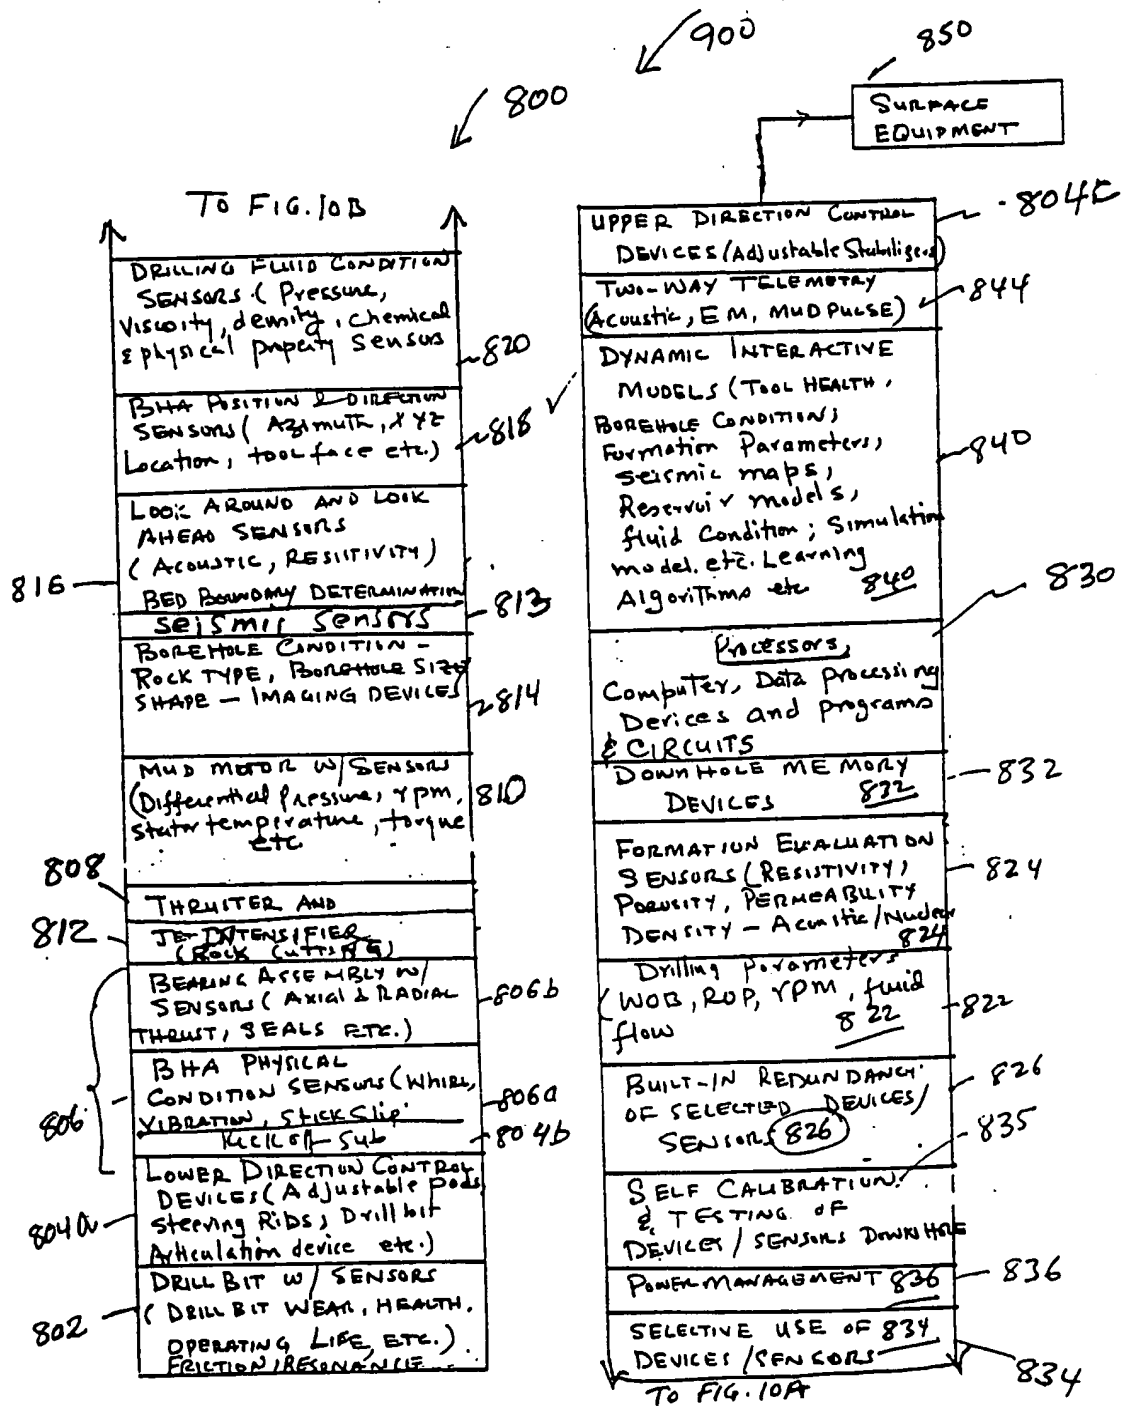 900
800
850
SURFACE
EQUIPMENT
TO FIG. 10B
DRILLING FLUID CONDITION
SENSORS (Pressure,
Viscosity, density, chemical
& physical property sensors
820
BHA POSITION & DIRECTION
SENSORS (Azimuth, XYZ
Location, tool face etc.)
818
LOOK AROUND AND LOOK
AHEAD SENSORS
(ACOUSTIC, RESISTIVITY)
BED BOUNDARY DETERMINATION
816
Seismic Sensors
813
BOREHOLE CONDITION -
ROCK TYPE, BOREHOLE SIZE
SHAPE - IMAGING DEVICES
814
MUD MOTOR W/ SENSORS
(Differential Pressure, rpm,
Stator temperature, torque
etc
810
808
THRUSTER AND
812
JET INTENSIFIER
(ROCK CUTTING)
BEARING ASSEMBLY W/
SENSORS (AXIAL & RADIAL
THRUST, SEALS ETC.)
806b
BHA PHYSICAL
CONDITION SENSORS (WHIRL,
VIBRATION, Stick Slip
806
806a
KICK OFF SUB
804b
LOWER DIRECTION CONTROL
DEVICES (Adjustable pads
Steering Ribs, Drill bit
Articulation device etc.)
804a
DRILL BIT W/ SENSORS
(DRILL BIT WEAR, HEALTH,
OPERATING LIFE, ETC.)
FRICTION/RESONANCE
802
UPPER DIRECTION CONTROL
DEVICES (Adjustable Stabilizers)
804c
TWO-WAY TELEMETRY
(Acoustic, EM, MUD PULSE)
844
DYNAMIC INTERACTIVE
MODELS (TOOL HEALTH,
BOREHOLE CONDITION,
Formation Parameters,
Seismic maps,
Reservoir models,
fluid Condition; Simulation
model. etc. Learning
Algorithms etc 840
840
830
Processors,
Computer, Data processing
Devices and programs
& CIRCUITS
DOWNHOLE MEMORY
DEVICES 832
832
FORMATION EVALUATION
SENSORS (RESISTIVITY,
POROSITY, PERMEABILITY
DENSITY - Acoustic/Nuclear
824
824
Drilling Parameters
(WOB, ROP, rpm, fluid
flow 822
822
BUILT-IN REDUNDANCY
OF SELECTED DEVICES/
SENSORS 826
826
835
SELF CALIBRATION
& TESTING OF
DEVICES / SENSORS DOWNHOLE
POWER MANAGEMENT 836
836
SELECTIVE USE OF 834
DEVICES / SENSORS
834
TO FIG. 10A